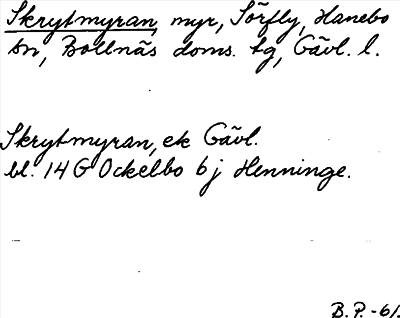 Skrytmyran, myr, Sörfly, Hanebo
sn, Bollnäs doms. tg, Gävl. l.
Skrytmyran, ek Gävl.
bl. 14 G Ockelbo 6 j Henninge.
B.P.-61.